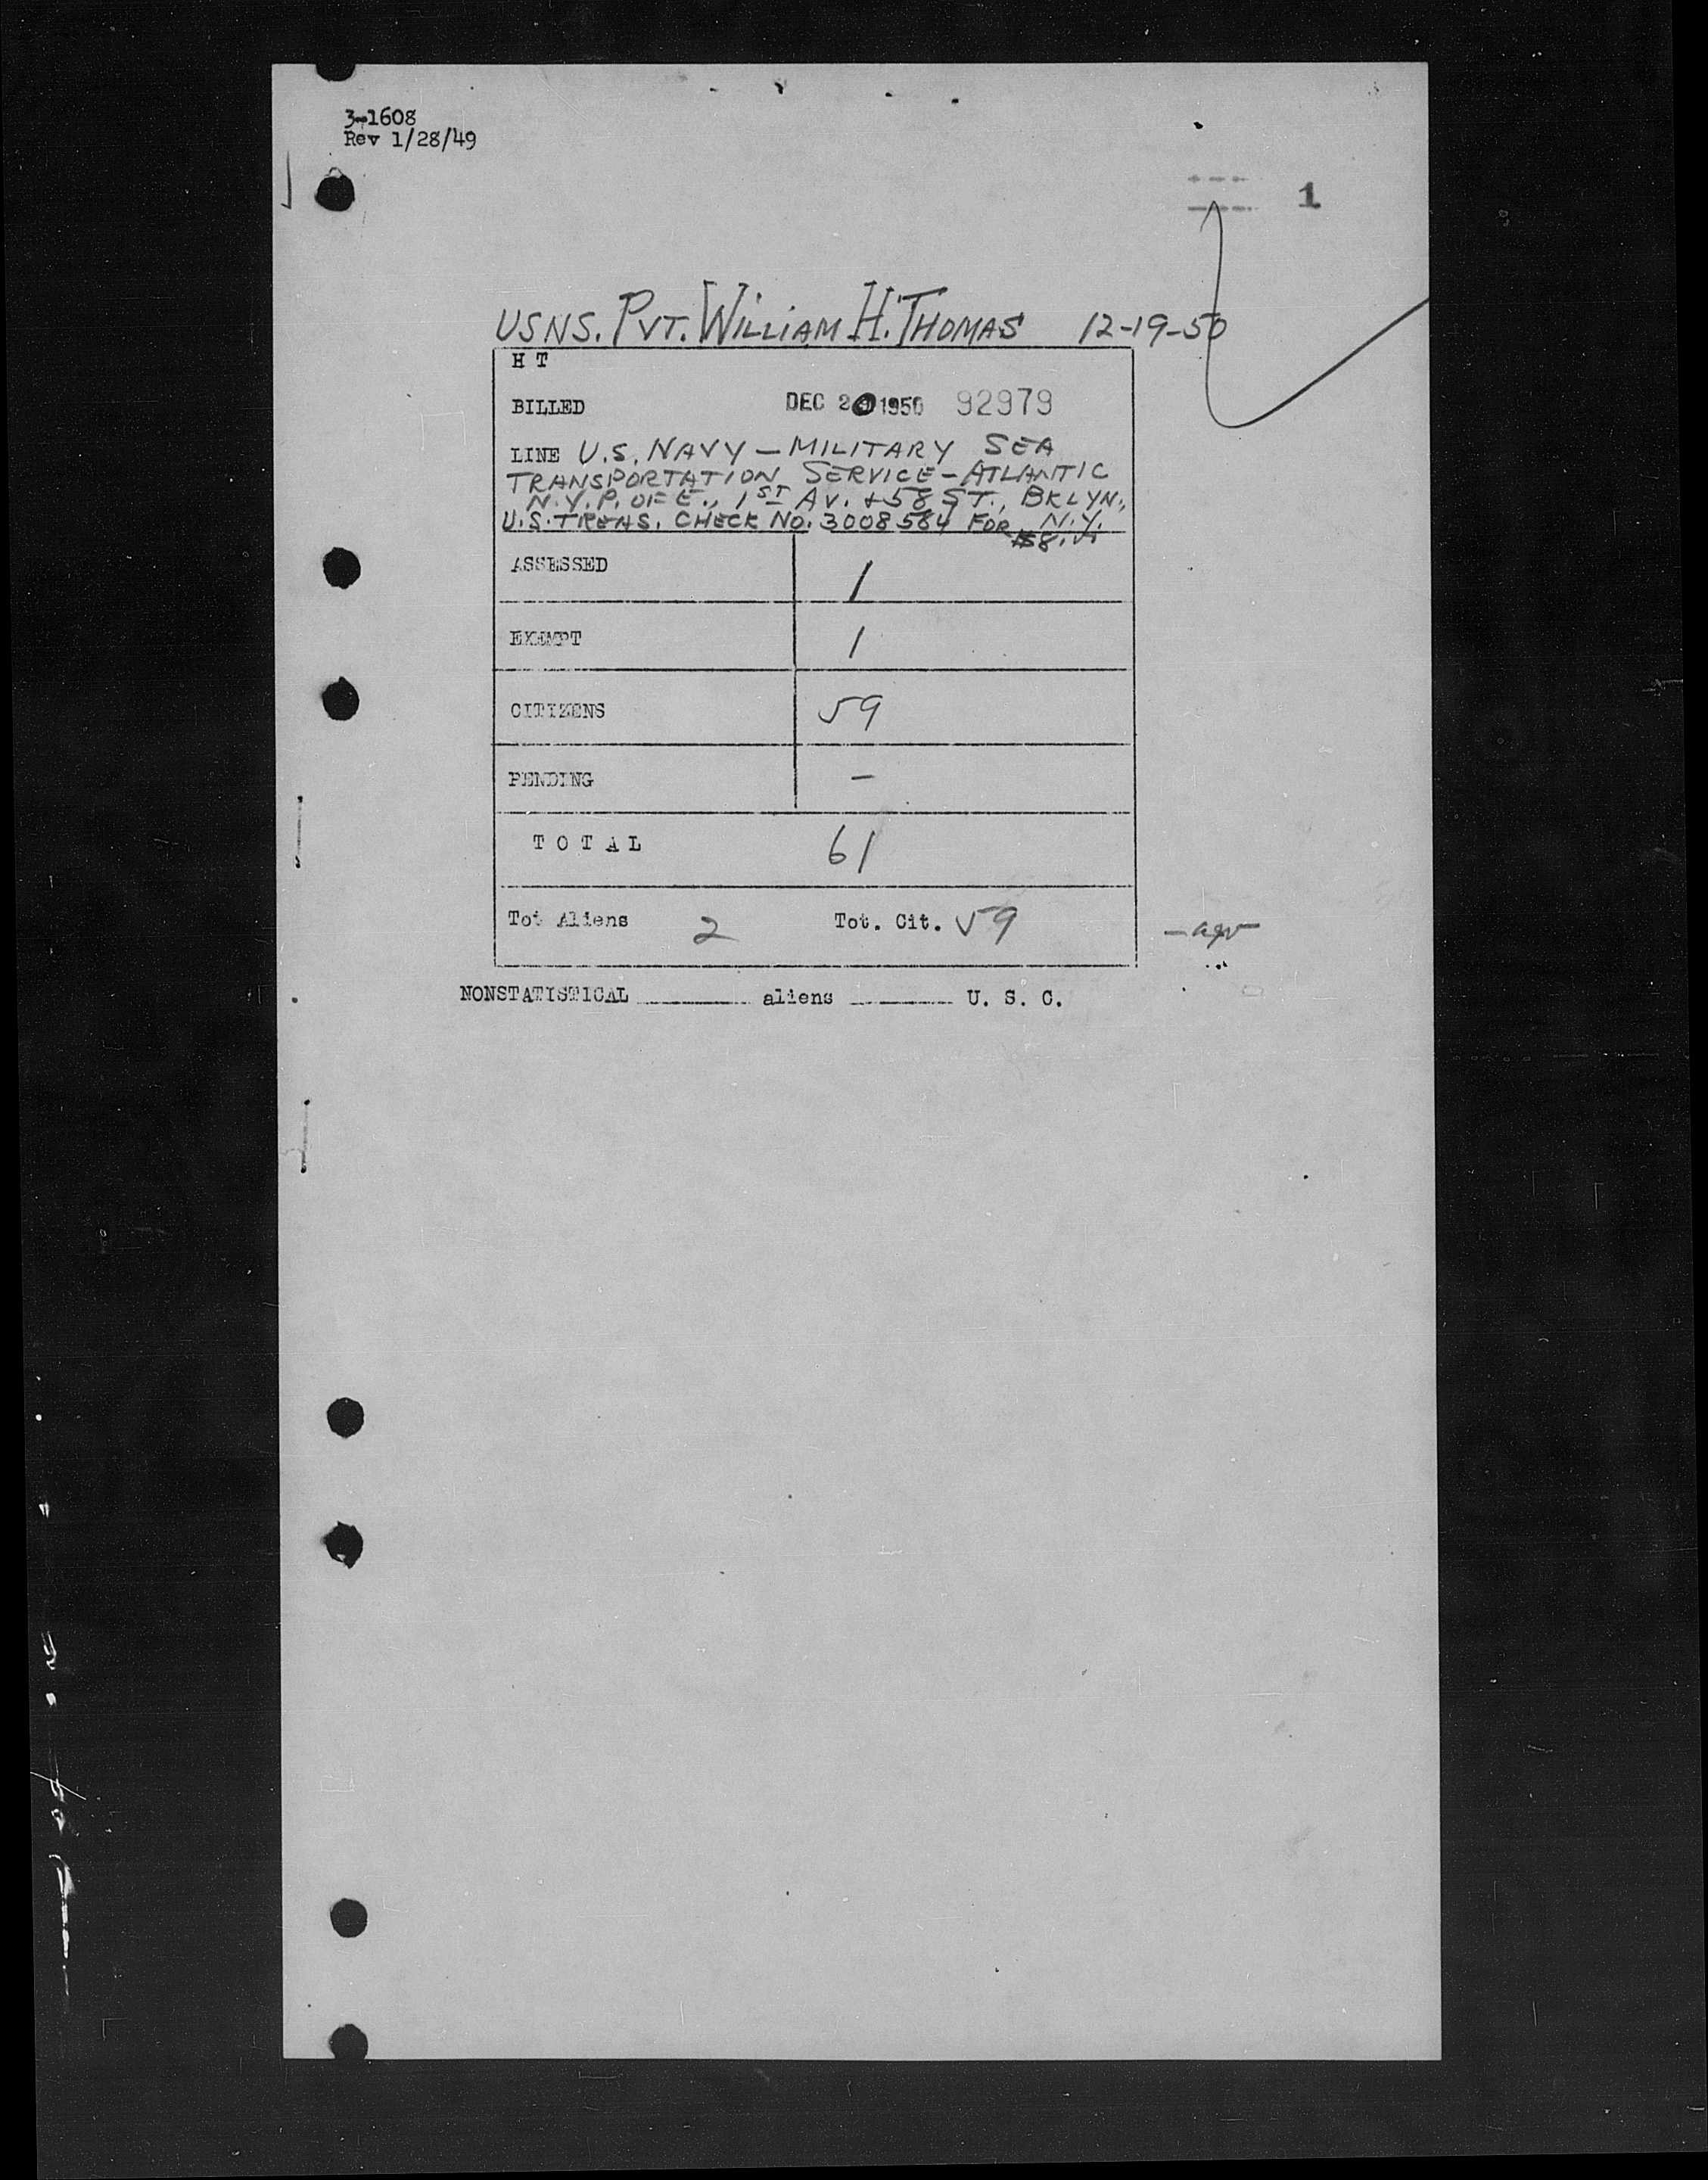 3-1608
Rev 1/28/49
1
USNS. PVT. WILLIAM H. THOMAS 12-19-50
H T
BILLED DEC 2 1950 92979
LINE U.S. NAVY — MILITARY SEA
TRANSPORTATION SERVICE — ATLANTIC
N.Y. P. OF E., 1ST AV. + 58 ST., BKLYN.,
U.S. TREAS. CHECK NO. 3008584 FOR N.Y.
$8.
ASSESSED 1
EXEMPT 1
CITIZENS 59
PENDING —
T O T A L 61
Tot Aliens 2 Tot. Cit. 59
NONSTATISTICAL aliens U. S. C.